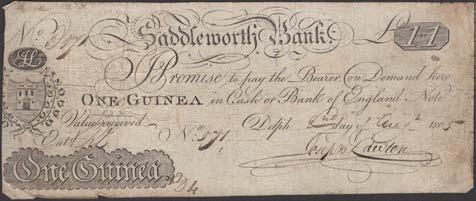 No 577 Saddleworth Bank. £1"1
I Promise to pay the Bearer on Demand here
ONE GUINEA in Cash or Bank of England Note
Value received No 577 Delph 2nd day of 1805
Entd Joseph Lawton
One Guinea